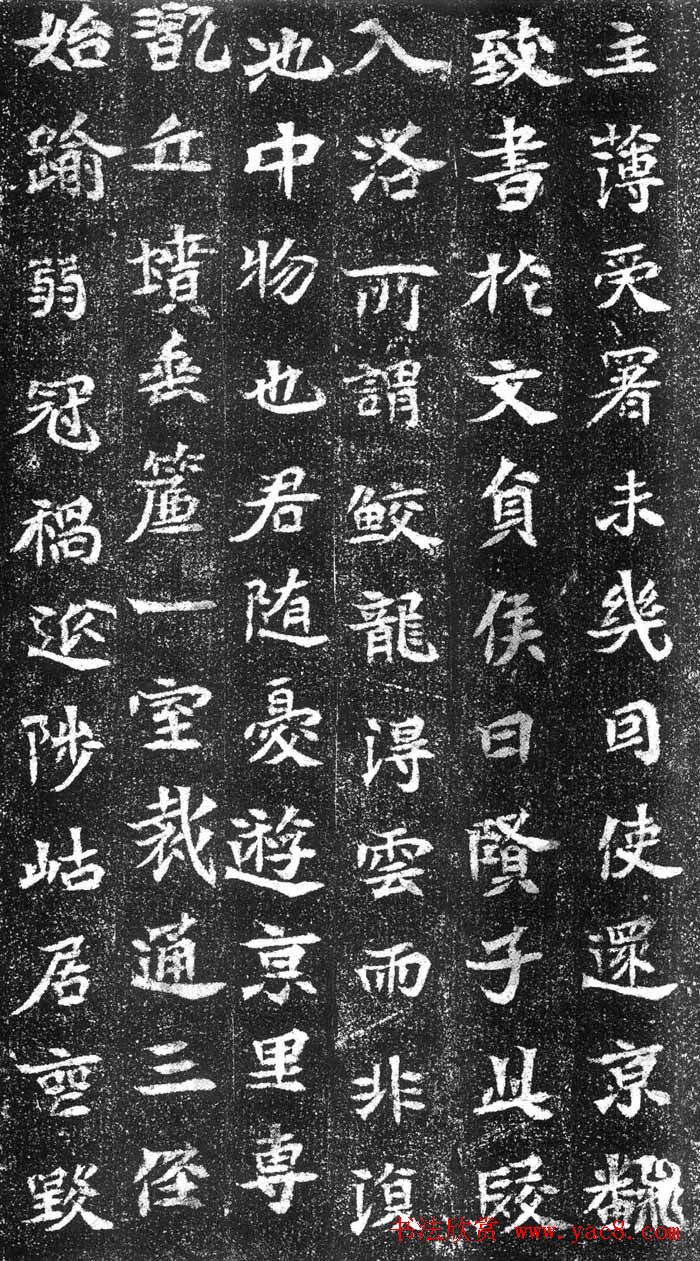 主薄受署未幾回使還京
致書於文貞侯曰賢子此陵
入洛所謂鮫龍得雲雨非湏
池中物也君随憂遊京里専
翫丘墳垂簾一室裁通三徑
始踰弱冠禍延陟岵居喪毀
书法欣赏 www.yac8.com